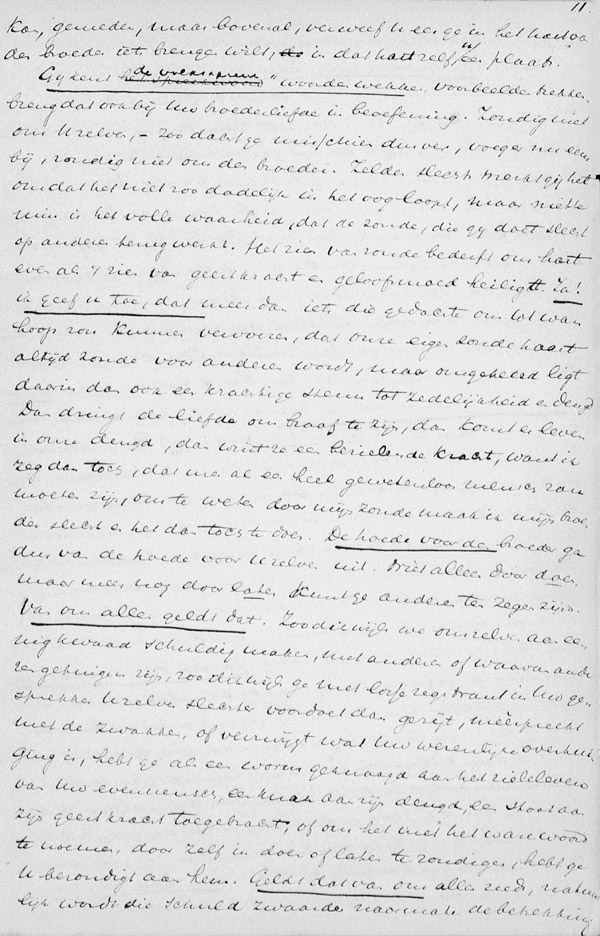 11.
kan, gemeden, maar bovenal, verweef u eer ge in het hart van
den broeder iets brengen wilt, in dat hart zelf, een plaats.
Gij kent de volksspreuk "woorden wekken, voorbeelden trekken,
breng dat ook bij Uw broederliefde in beoefening. Zondig niet
om Uzelven, – zoo dacht ge misschien dusver, voeger nu eens
bij, zondig niet om den broeder. Zelden slechts merkt gij het
omdat het niet zoo dadelijk in het oog loopt, maar niette
min is het volle waarheid, dat de zonde, die gij doet slecht
op anderen terugwerkt. Het zien van zonde bederft ons hart
even als 't zien van geestkracht en geloofsmoed heiligt. Ja!
ik geef u toe, dat meer dan iets, die gedachte ons tot wan
hoop zou kunnen vervoeren, dat onze eigen zonde haast
altijd zonde voor anderen wordt, maar omgekeerd ligt
daarin dan ook een krachtige steun tot zedelijkheid en deugd
Dan dringt de liefde ons braaf te zijn, dan komt er leven
in onze deugd, dan wint ze een bezielende kracht, want ik
zeg dan toch, dat men al een heel gewetenloos mensch zou
moeten zijn, om te weten door mijn zonde maak ik mijn broe
der slecht en het dan toch te doen. De hoede voor den broeder ga
dus van de hoede voor Uzelven uit. Niet alleen door doen,
maar meer nog door laten kunt ge anderen ten zegen zijn.
Van ons allen geldt dat. Zoo dikwijls we onszelven aan ee
nig kwaad schuldig maken, met anderen of waarvan ande
ren getuigen zijn, zoo dikwijls ge met losse zegstrant in Uw ge
sprekken Uzelven slechter voordoet dan ge zijt, meêspreekt
met de zwakken, of verzwijgt wat Uw wezenlijke overtui
ging is, hebt ge als een worm geknaagd aan het zieleleven
van Uw evenmensch, een knak aan zijn deugd, een stoot aan
zijn geestkracht toegebracht, of om het met het ware woord
te noemen, door zelf in doen of laten te zondigen, hebt ge
U bezondigt aan hem. Geldt dat van ons allen reeds, natuur
lijk wordt die schuld zwaarder naarmate de betrekking